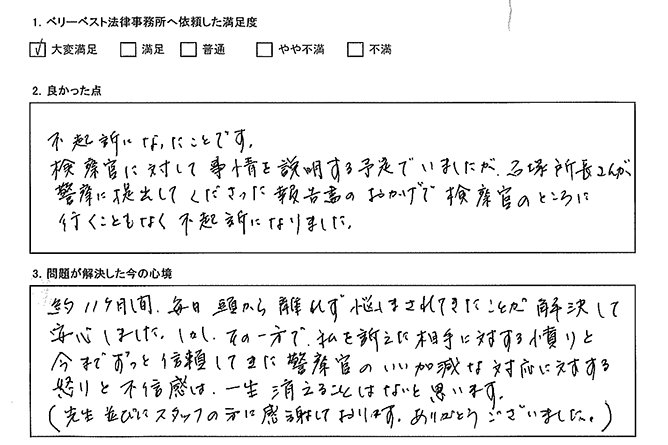 1. ベリーベスト法律事務所へ依頼した満足度
大変満足 満足 普通 やや不満 不満
2. 良かった点
不起訴になったことです。
検察官に対して事情を説明する予定でいましたが、石塚所長さんが
警察に提出してくださった報告書のおかげで検察官のところに
行くこともなく不起訴になりました。
3. 問題が解決した今の心境
約11ケ月間、毎日頭から離れず悩まされてきたことが解決して
安心しました。しかし、その一方で、私を訴えた相手に対する憤りと
今までずっと信頼してきた警察官のいい加減な対応に対する
怒りと不信感は、一生消えることはないと思います。
(先生並びにスタッフの方に感謝しております。ありがとうございました。)